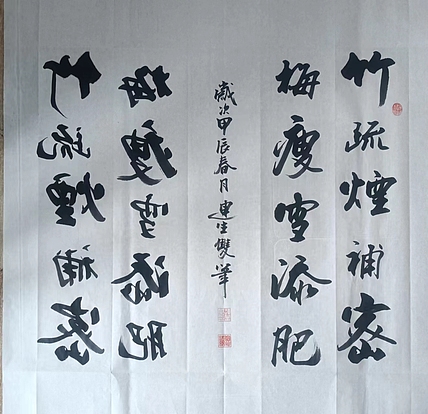 竹疏煙補密
梅瘦雪添肥
歲次甲辰春月連生雙筆
梅瘦雪添肥
竹疏煙補密